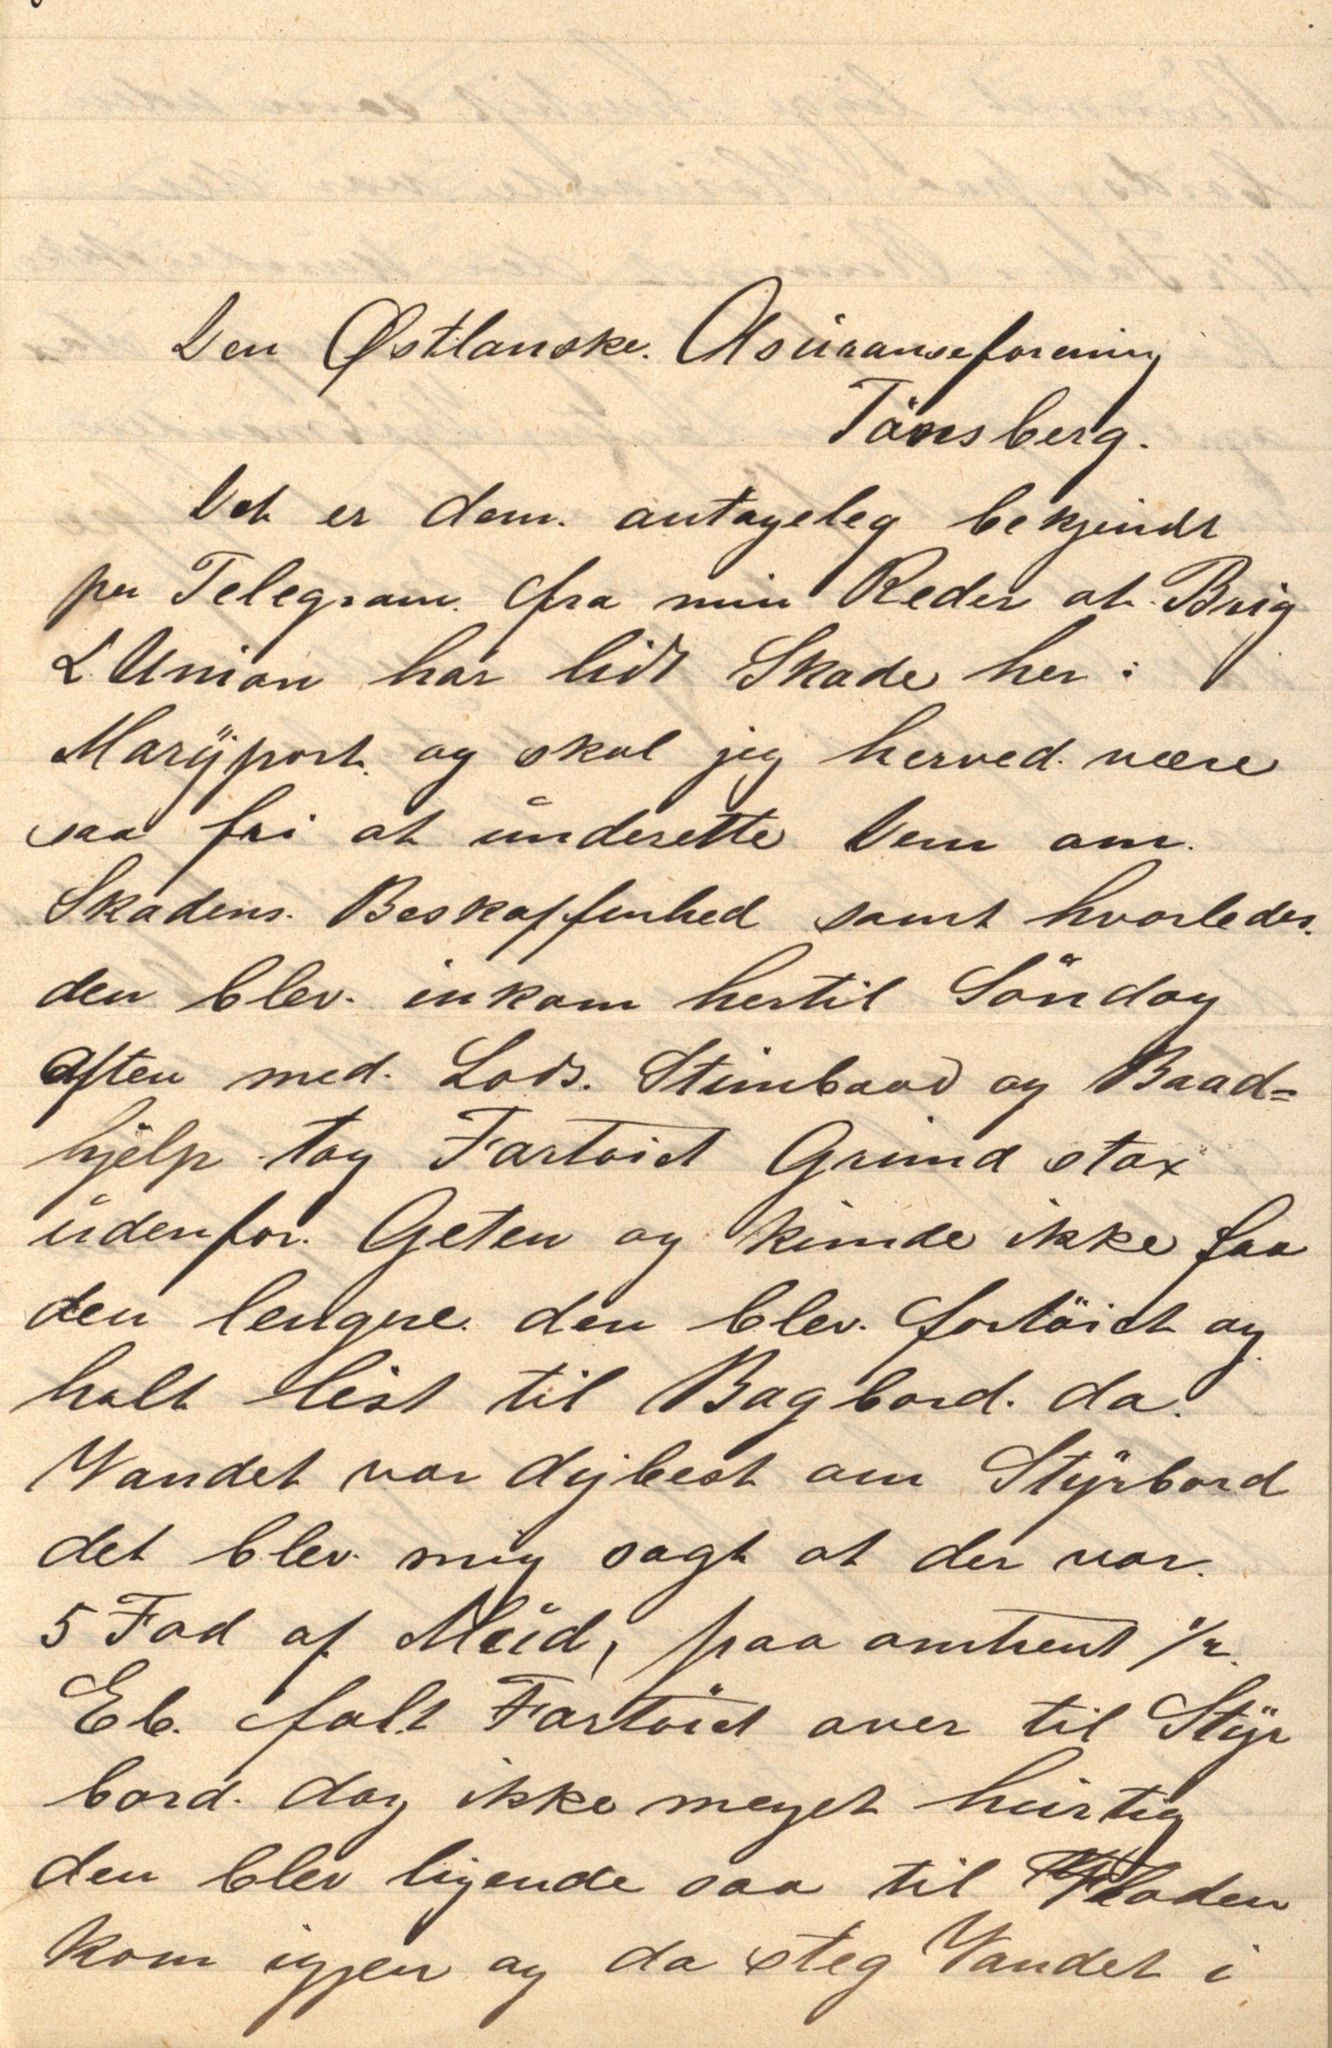 Den Østlanske Asuranseforening
Tönsberg.
Det er dem antageleg bekjendt
per Telegram fra min Reder at Brig
L'Union har lidt Skade her i
Maryport og skal jeg herved være
saa fri at underette Dem om
Skadens Beskaffenhed samt hvorledes
den blev. inkom hertil Söndag
Aften med Lods. Stimbaad og Baad=
hjelp tog Fartöiet Grund stax
udenfor Geten og kunde ikke faa
den lengre den blev fortöiet og
halt list til Bagbord. da
Vandet var dybest om Styrbord
det blev mig sagt at der var
5 Fod af Mud, paa omtrent 1/2
Eb. falt Fartöiet over til Styr
bord. dog ikke meget hurtig
den blev ligende saa til Floden
kom igjen og da steg Vandet i